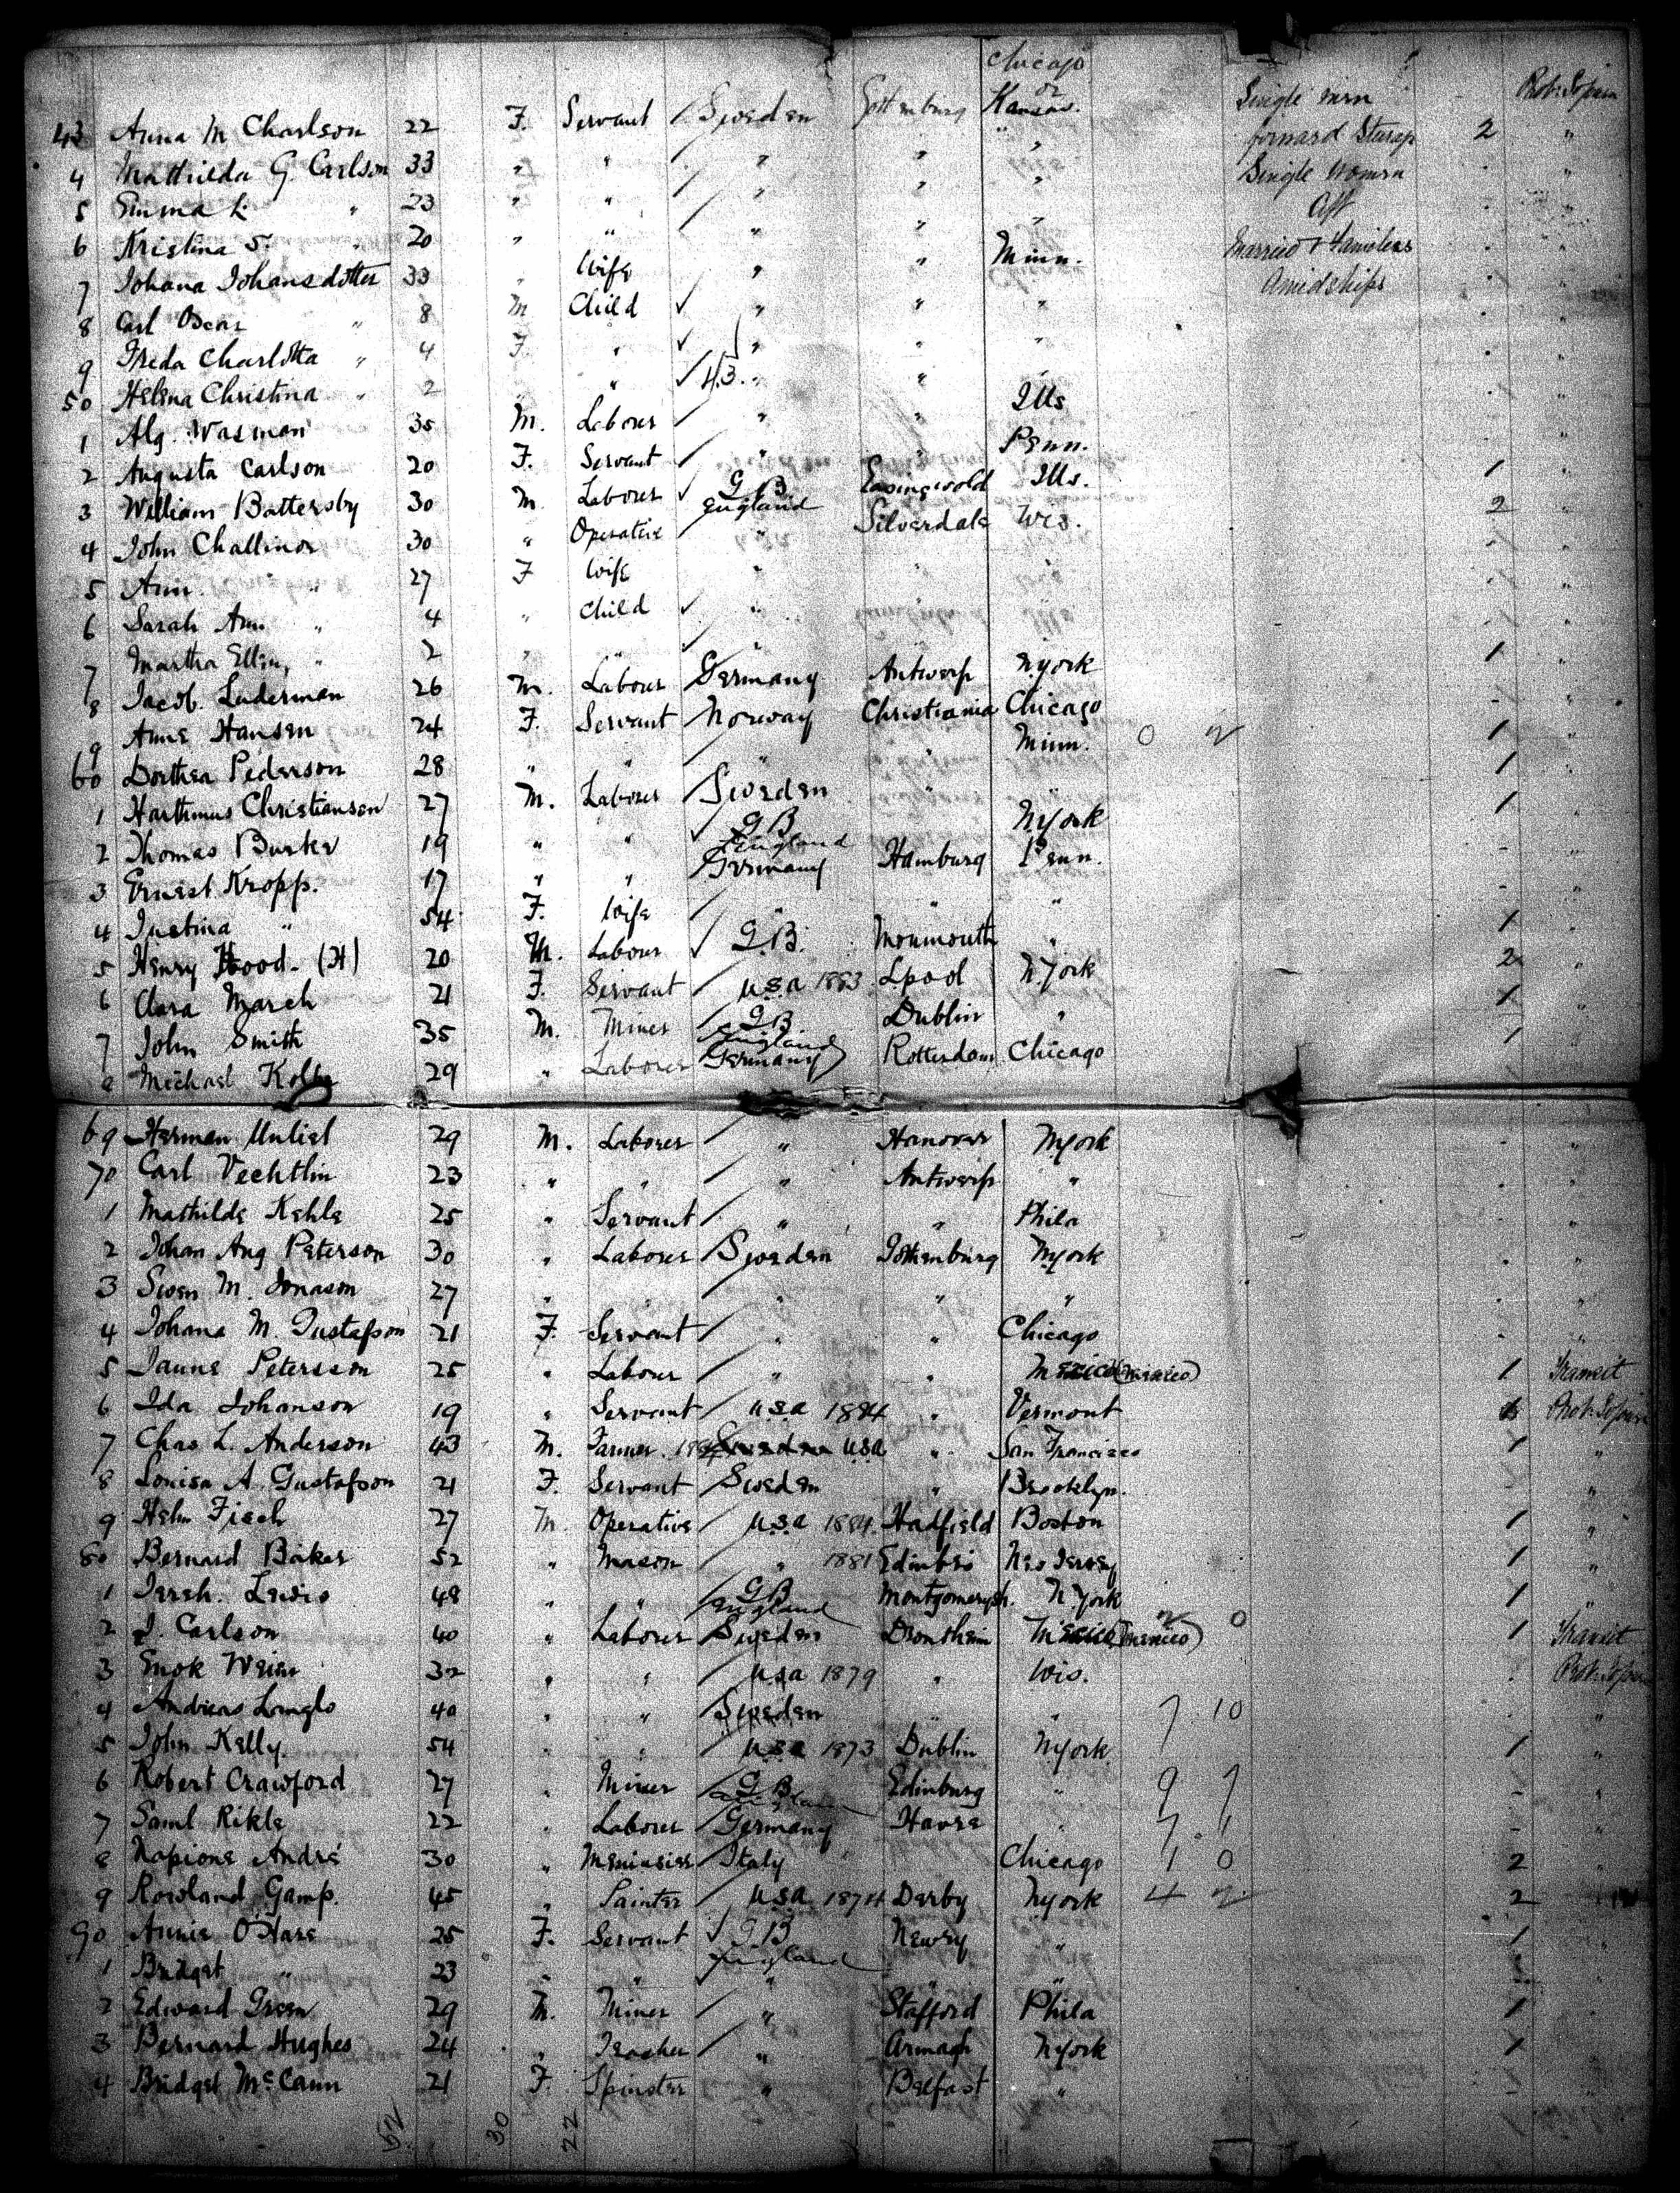 Chicago
or
43 Anna M Charlson 22 F. Servant Sweden Gothenburg Kansas. Single men
4 Mathilda G. Carlson 33 " " " " " forward 2 "
5 Emma L. " 23 " " " " " Single Women
6 Kristina S. " 20 " " " " " Aft
7 Johana Johansdotter 33 " Wife " " Minn. Married & Families
8 Carl Oscar " 8 M Child " " " Amidships
9 Freda Charlotta " 4 F. " " " "
50 Helena Christina " 2 " " 43. " "
1 Alg. Wasman 35 M. Laborer " " Ills
2 Augusta Carlson 20 F. Servant " " Penn.
3 William Battersby 30 M. Laborer G B England Easingwold Ills. 1
4 John Challinor 30 " Operative " Silverdale Wis. 2
5 Ann " 27 F Wife " " "
6 Sarah Ann " 4 " Child " " "
7 Martha Ellin, " 2 " " " " "
8 Jacob. Luderman 26 M. Labourer Germany Antwerp N.york 1
9 Anne Hansen 24 F. Servant Norway Christiania Chicago
60 Dorthea Pederson 28 " " " " Minn. 0 2 1
1 Harthmus Christiansen 27 M. Laborer Sweden " " 1
2 Thomas Burke 19 " " G B England N.York 1
3 Ernest Kropp. 17 " " Germany Hamburg Penn.
4 Justina " 54 F. Wife " " "
5 Henry Hood. (H) 20 M. Labourer G.B. Monmouth " 1
6 Clara March 21 F. Servant U.S.A 1883 Lpool N.York 2
7 John Smith 35 M. Miner G.B. England Dublin " 1
8 Michael Kolbe 29 " Laborer Germany Rotterdam Chicago 1
69 Herman 29 M. Laborer " Hanover N.York
70 Carl Vechtlin 23 " " " Antwerp "
1 Mathilde Kehle 25 " Servant " " Phila
2 Johan Aug Peterson 30 " Laborer Sweden Gothenburg N.York
3 Swen M. Jonason 27 " " " " "
4 Johana M. Gustafson 21 F. Servant " " Chicago
5 Janne Petersson 25 " Labourer " " Mexico (Mexico) 1 Transit
6 Ida Johanson 19 " Servant U.S.A 1884 " Vermont
7 Chas L. Anderson 43 M. Farmer 1884 Sweden U.S.A " San Francisco 1 "
8 Louisa A. Gustafson 21 F. Servant Sweden " Brooklyn. "
9 Helm Fisch 27 M. Operative U.S.A 1884. Hadfield Boston 1 "
80 Bernard Baker 52 " Mason " 1881 Edinbro New Jersey 1 "
1 Lewis 48 " " G B England Montgomerysh. N.York 1
2 J. Carlson 40 " Laborer Sweden Drontheim Mexico (Mexico) 2 0 1 Transit
3 Enok 32 " " U.S.A 1879 " Wis.
4 Andreas Langlo 40 " " Sweden " " 7 10 "
5 John Kelly. 54 " " U.S.A 1873 Dublin N.York 1 "
6 Robert Crawford 27 " Miner G B England Edinburg " 9 7
7 Saml Rikle 22 " Laborer Germany Havre " 7 1
8 Napione André 30 " Menuisier Italy Chicago 1 0 2
9 Rowland Gamp. 45 " Painter U.S.A 1874 Derby N.York 4 2 2
90 Annie O'Hare 25 F. Servant G.B England Newry " 1
1 Bridget " 23 " " " " "
2 Edward Green 29 M. Miner " Stafford Phila 1
3 Bernard Hughes 24 " Teacher " Armagh N.York 1
4 Bridget McCann 21 F. Spinster " Belfast "
52 30 22